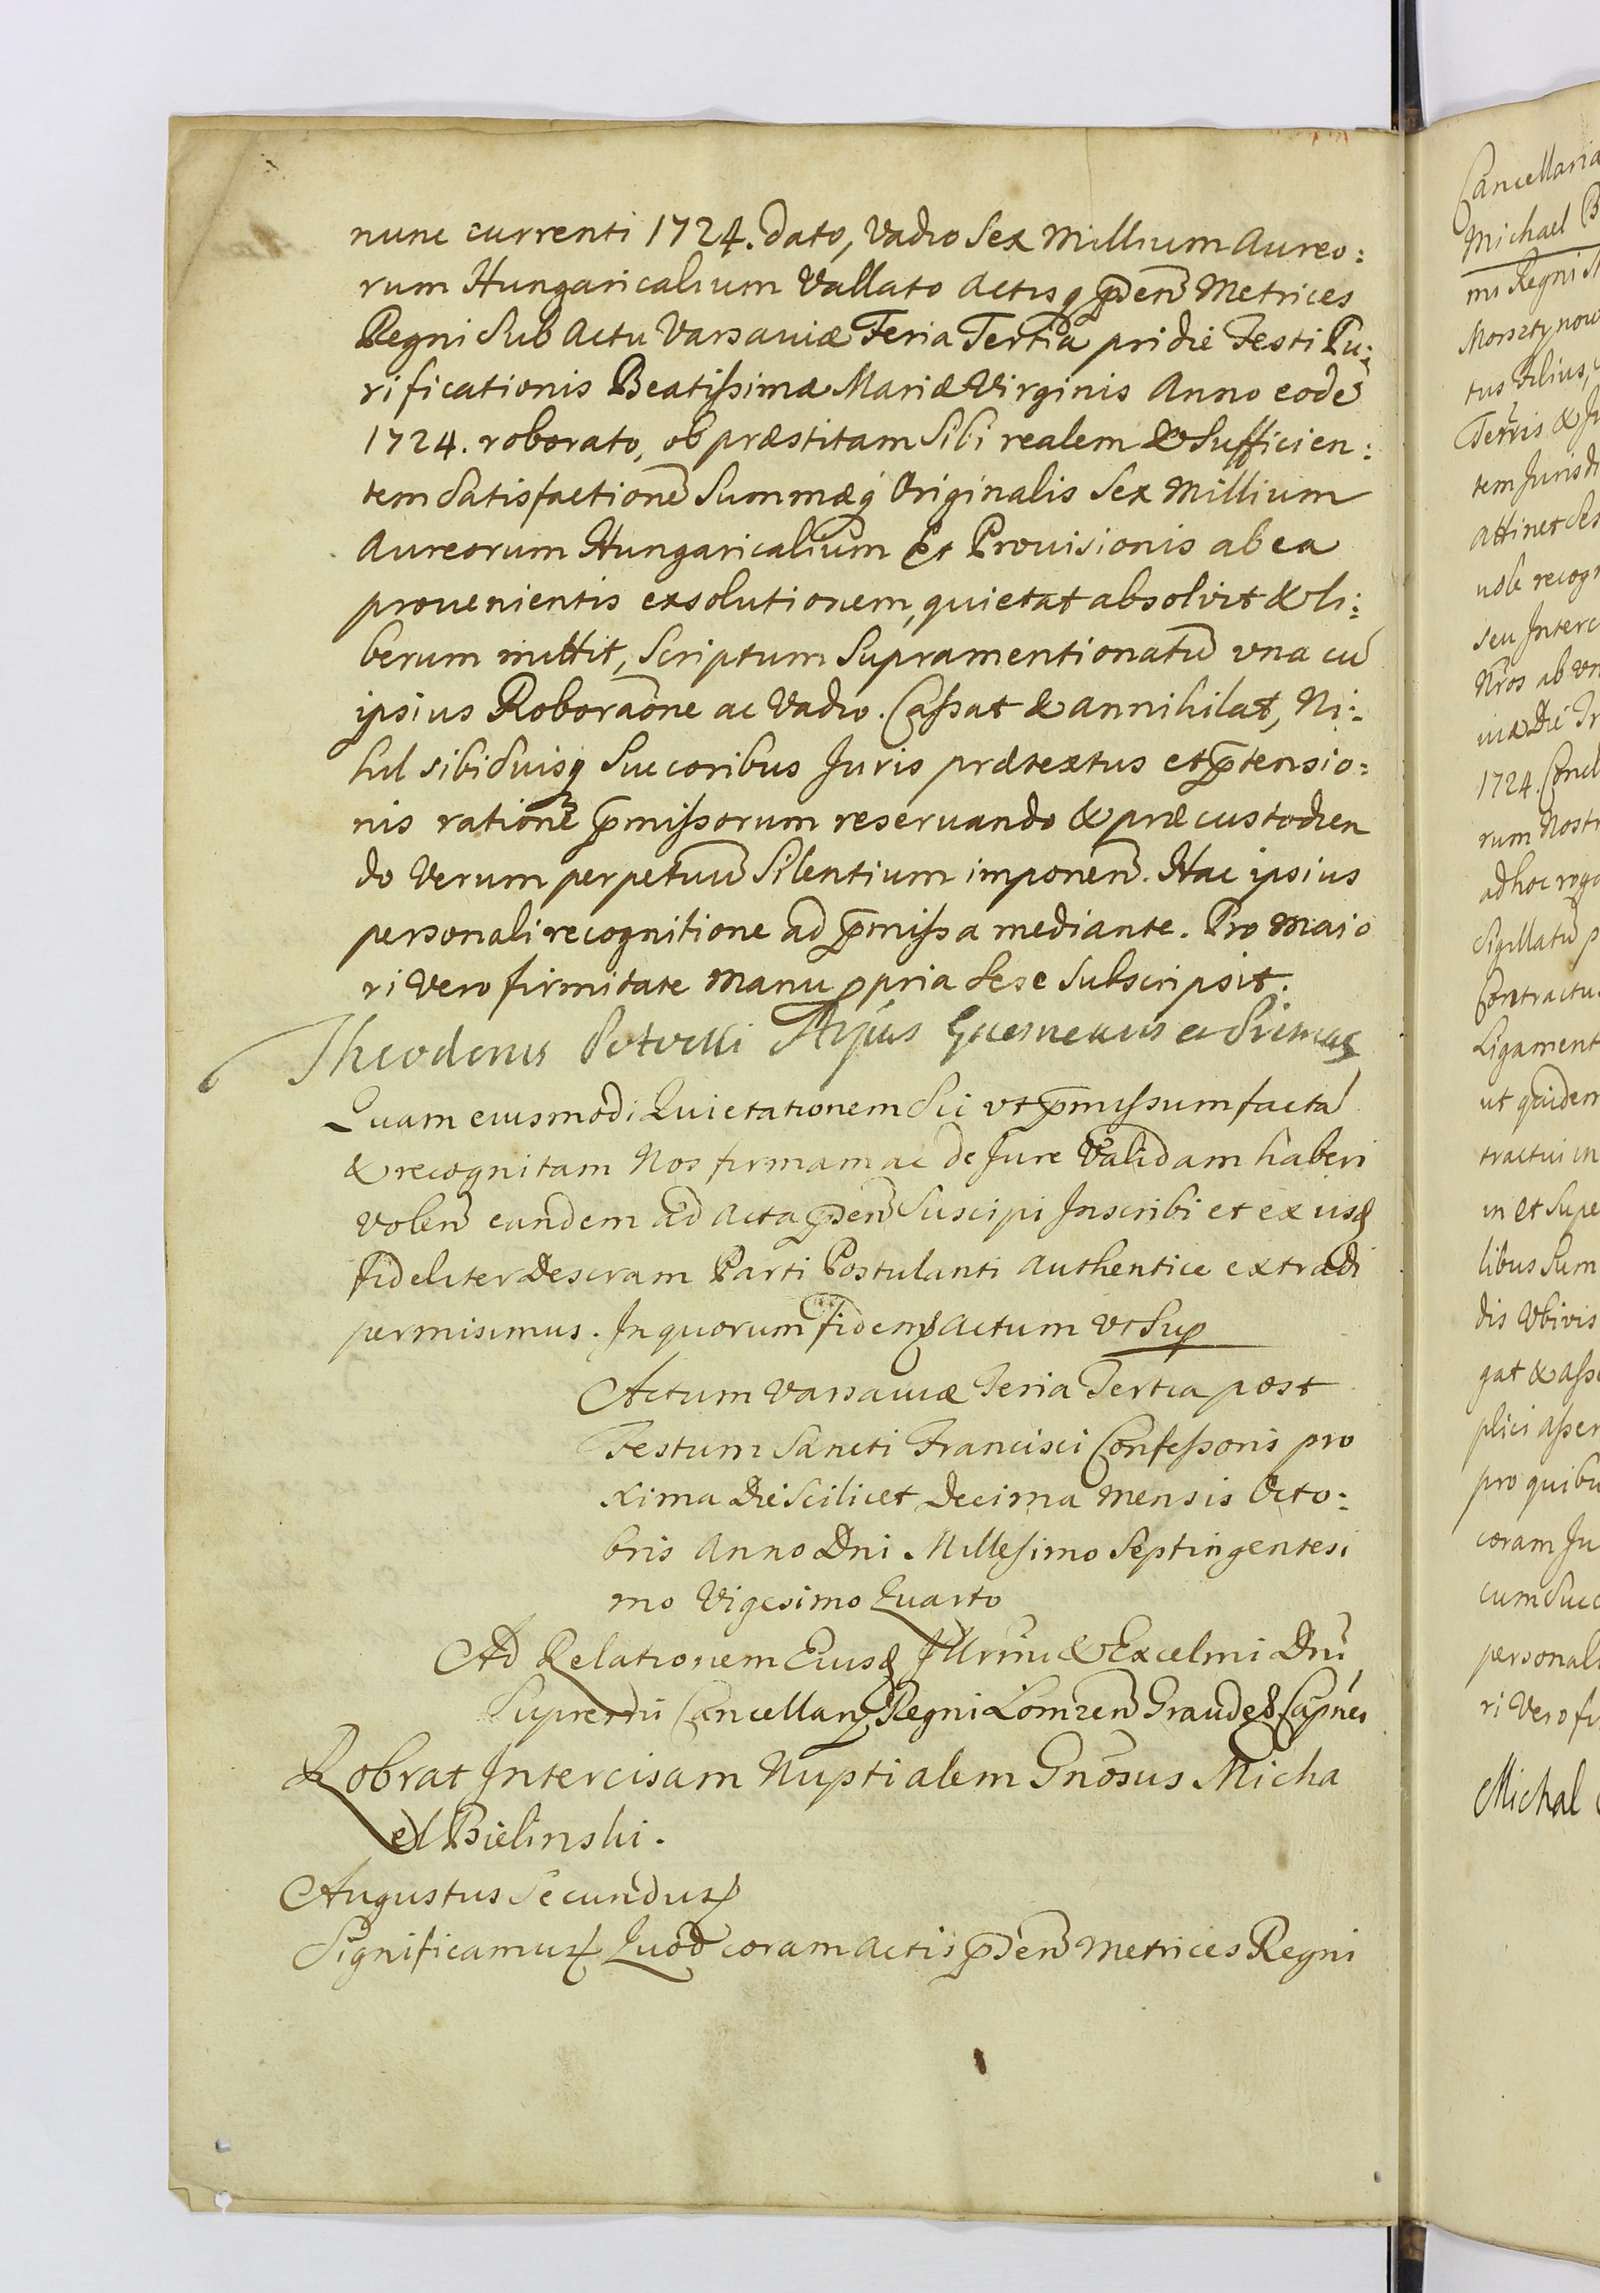 nunc currenti 1724. dato, Vadio Sex Millium Aureo:
rum Hungaricalium Vallato Actisq p̅den̅ Metrices
Regni Sub Actu Varsaviæ Feria Tertia pridie Festi Pu:
rificationis Beatissimæ Mariæ Virginis Anno eode̅
1724. roborato, ob præstitam Sibi realem & Sufficien:
tem Satisfactione̅ Summæq Originalis Sex Millium
Aureorum Hungaricalium Et Provisionis ab ea
provenientis exsolutionem, quietat absolvit & li:
berum mittit, Scriptum Supramentionatu̅ vna cu̅
ipsius Robora͠one ac Vadio. Cassat & annihilat, Ni:
hil sibi Suisq Succoribus Juris prætextus et p̅tensio:
nis ratione̅ p̅missorum reservando & præcustodien
do Verum perpetuu̅ Silentium imponen̅. Hac ipsius
personali recognitione ad p̅missa mediante. Pro Maio
ri Vero firmitate Manu ppria Sese Subscripsit.
Theodorus Potocki AEpus Gnesnensis et Primas
Quam eiusmodi Quietationem Sic vt p̅missum facta̅
& recognitam Nos firmam ac de Jure Validam haberi
Volen̅ eandem ad Acta p̅den̅ Suscipi Inscribi et ex iisd
fideliter Descram Parti Postulanti Authentice extradi
permisimus. In quorum fidem Actum vt Sup
Actum Varsaviæ Feria Tertia post
Festum Sancti Francisci Confessoris pro
xima Die Scilicet Decima Mensis Octo:
bris Anno Dni Millesimo Septingentesi
mo Vigesimo Quarto
Ad Relationem Eiusd Illrmi & Excelmi Dni
Supremi Cancellarij Regni Lomzen̅ Graudes Capnei
Robrat Intercisam Nuptialem Gnosus Micha
el Bielinski.
Augustus Secundus
Significamus Quod coram Actis p̅den̅ Metrices Regni
Cancellaria
Michael B
ms Regni
Morsztynow
tus Filius,
Terris & J
tem Jurisdi
attinet
recogn
seu Interc
Nros ab vn
1724. Concl
rum Nostr
ad hoc roga
Sigillatu̅ p
Contractu
Ligament
ut quidem
tractui in
in et Supe
libus Sum
dis Vbivis
gat & asse
plici asser
pro quibu
coram Ju
cum Succ
personali
ri Vero fi
Michal